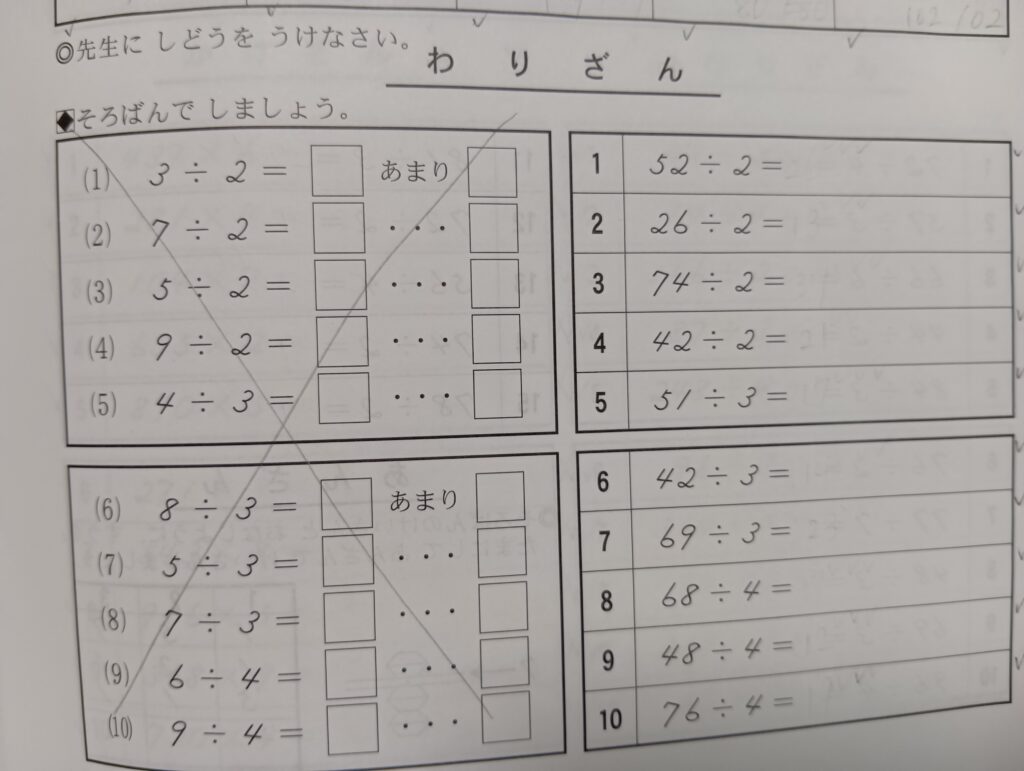 102 / 02
◎先生に しどうを うけなさい。
わりざん
◆そろばんで しましょう。
(1) 3 ÷ 2 = □ あまり □
(2) 7 ÷ 2 = □ ・・・ □
(3) 5 ÷ 2 = □ ・・・ □
(4) 9 ÷ 2 = □ ・・・ □
(5) 4 ÷ 3 = □ ・・・ □
(6) 8 ÷ 3 = □ あまり □
(7) 5 ÷ 3 = □ ・・・ □
(8) 7 ÷ 3 = □ ・・・ □
(9) 6 ÷ 4 = □ ・・・ □
(10) 9 ÷ 4 = □ ・・・ □
1 52 ÷ 2 =
2 26 ÷ 2 =
3 74 ÷ 2 =
4 42 ÷ 2 =
5 51 ÷ 3 =
6 42 ÷ 3 =
7 69 ÷ 3 =
8 68 ÷ 4 =
9 48 ÷ 4 =
10 76 ÷ 4 =